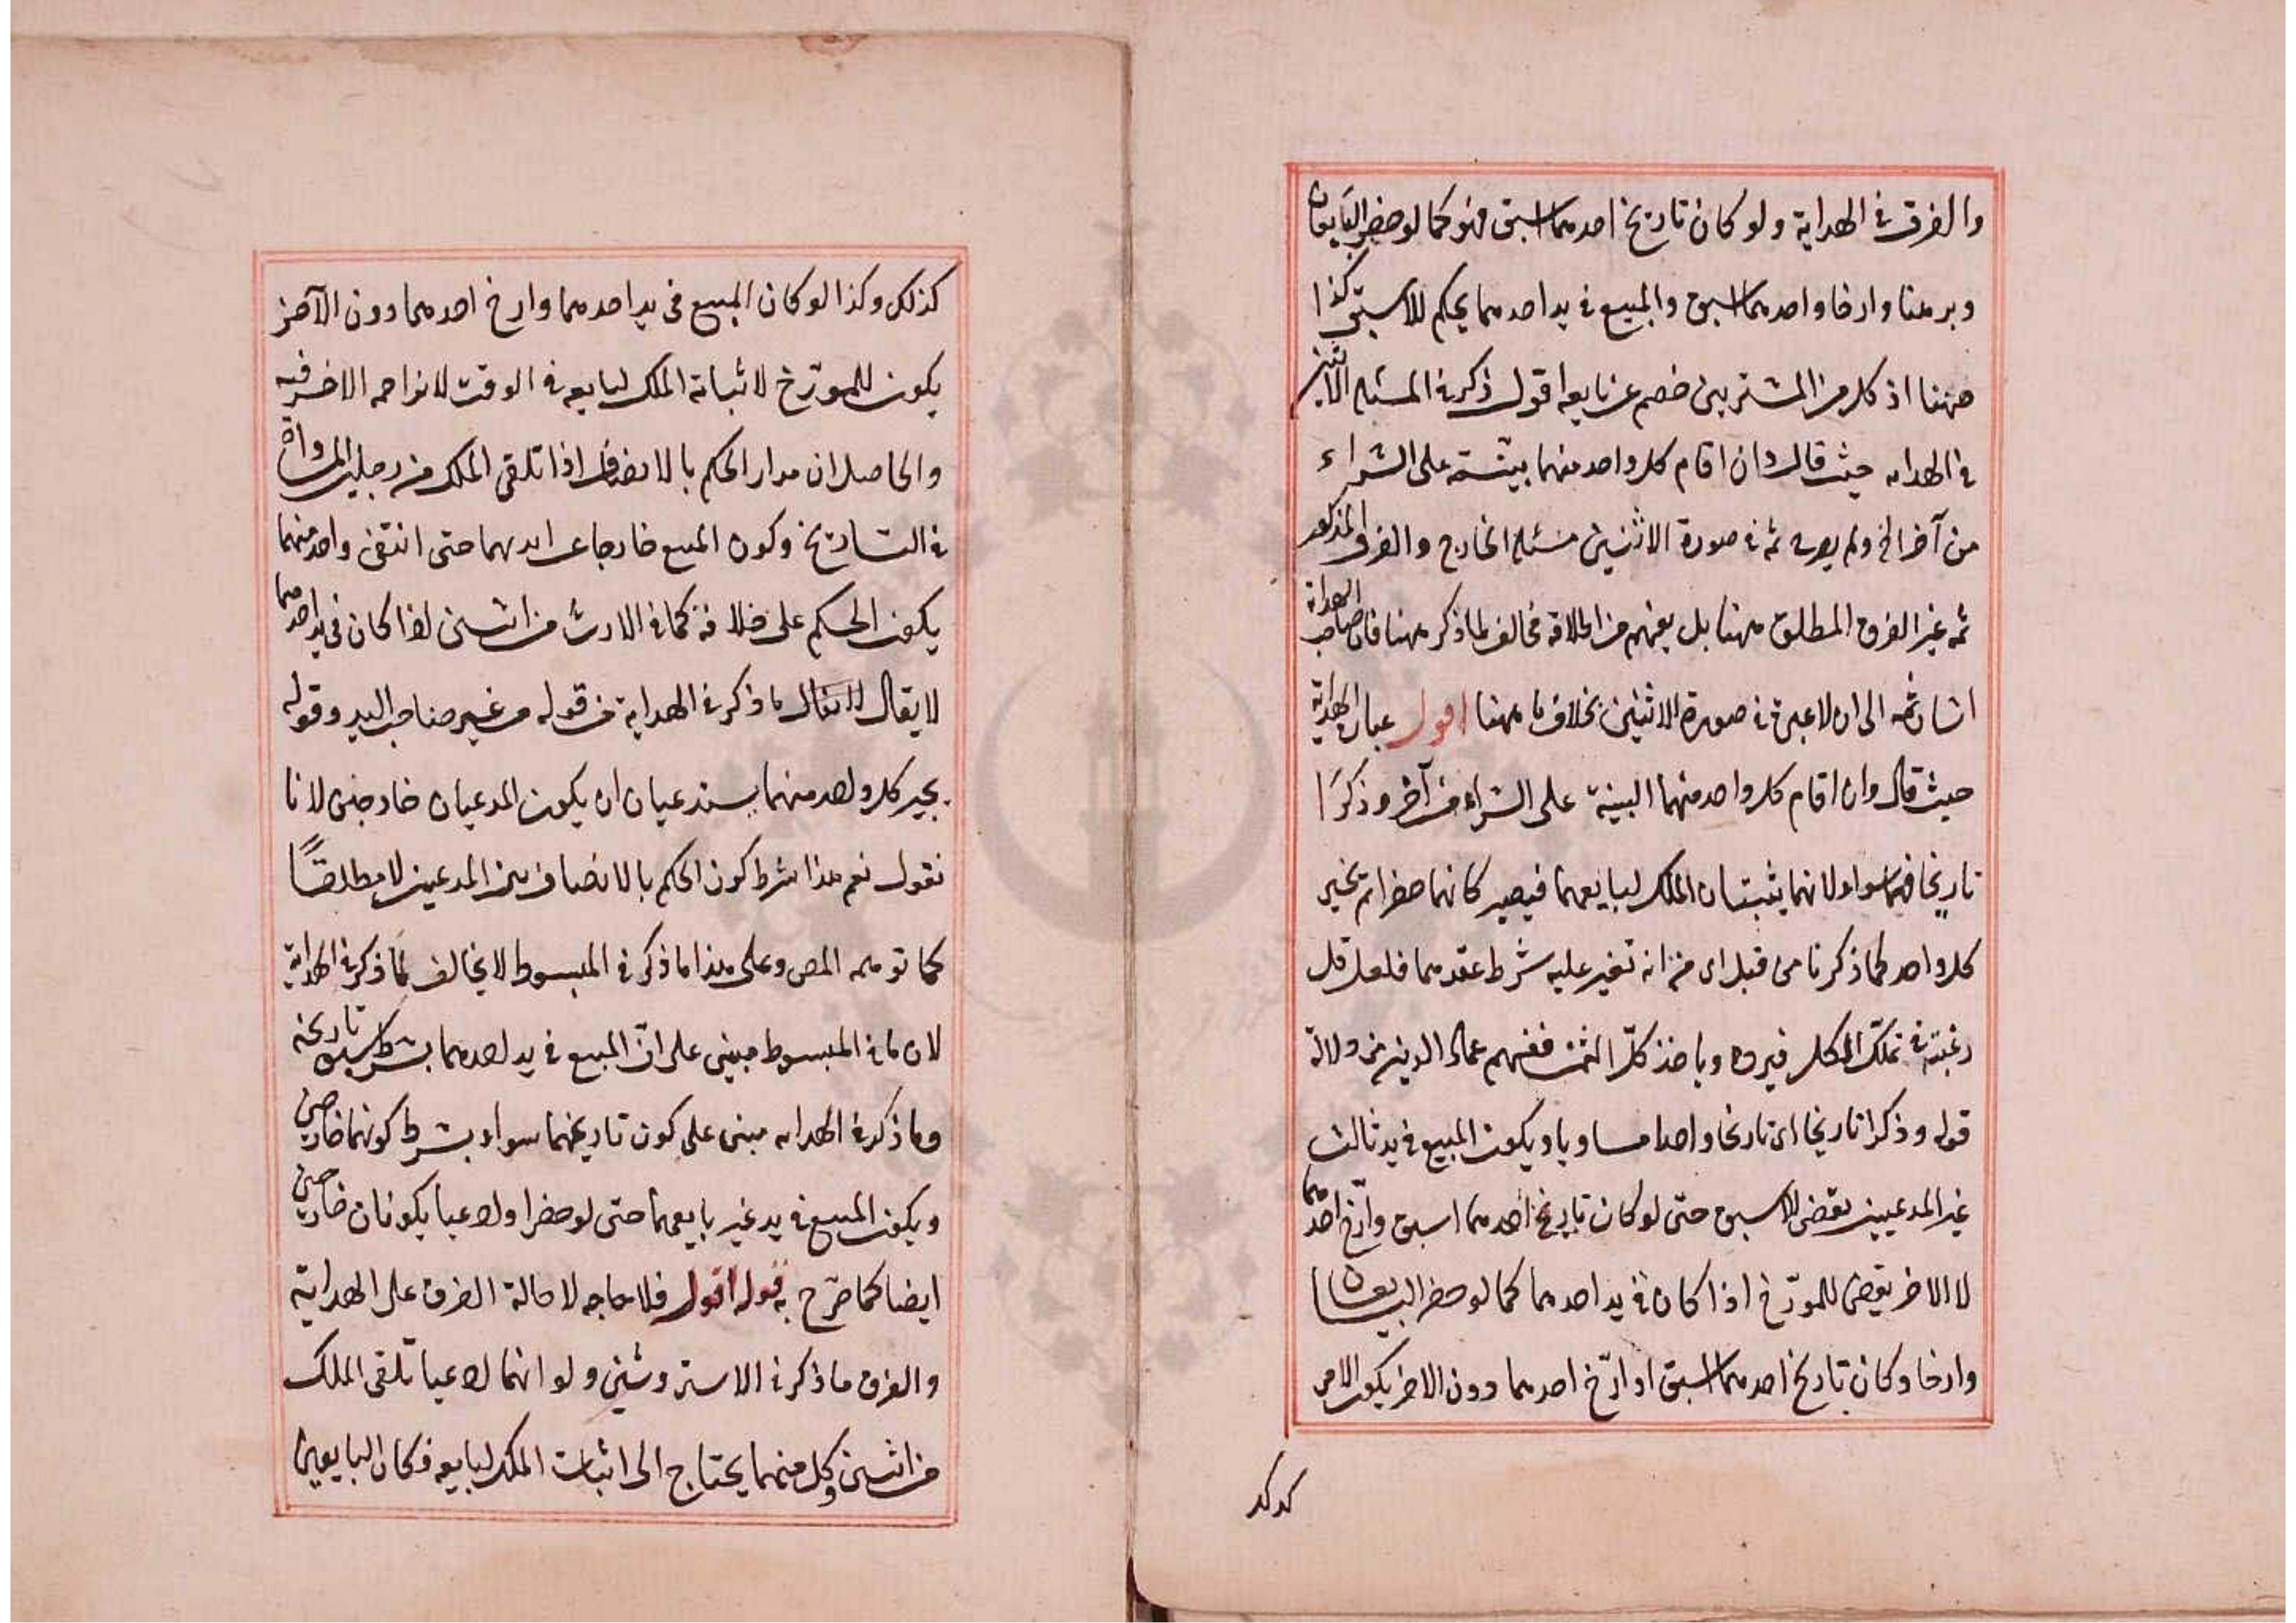 والفرق في الهداية ولو كان تاريخ احدهما اسبق فهو كما لو حضر البايعان
وبرهنا وارخا واحدهما اسبق والمبيع في يد احدهما يحكم للاسبق كذا
ههنا اذ كل من المشتريين خصم عن بايعه اقول ذكر في المسئلة الاثنين
في الهدايه حيث قال وان اقام كل واحد منهما بينة على الشراء
من آخر الخ ولم ثمه في صورة الاثنين مسئلة الخارج والفرق المذكور
ثمه غير الفرق المطلق ههنا بل يفهم من اطلاقه مخالف لما ذكر ههنا فان صاحب الهداية
اشار ثمه الى ان لا عبرة في صورة الاثنين بخلاف ما ههنا اقول عبارة الهداية
حيث قال وان اقام كل واحد منهما البينة على الشراء من آخر وذكرا
تاريخا فهما سواء لانهما يثبتان الملك لبايعهما فيصير كانهما حضرا ثم يخير
كل واحد كما ذكرنا من قبل اى من انه تغير عليه شرط عقدهما فلعل قل
رغبته في تملك الكل فيرده وياخذ كل الثمن ففهم عماد الدين من دلالة
قوله وذكرا تاريخا اى تاريخا واحدا مساويا ويكون المبيع في يد ثالث
غير المدعيين يقضى للاسبق حتى لو كان تاريخ احدهما اسبق وارّخ احدهما
لا الاخر يقضى للمورّخ اذا كان في يد احدهما كما لو حضر البايعان
وارخا وكان تاريخ احدهما اسبق او ارّخ احدهما دون الاخر يكون الامر
كذلك
كذلك وكذا لو كان المبيع في يد احدهما وارخ احدهما دون الآخر
يكون للمورّخ لاثباته الملك لبايعه في الوقت لا يزاحمه الاخر فيه
والحاصل ان مدار الحكم بالانصاف اذا تلقى الملك من رجلين المساواة
في التاريخ وكون المبيع خارجا عن ايديهما حتى انتفى واحد منهما
يكون الحكم على خلافه كما في الارث من اثنين اذا كان في يد احدهما
لا يقال لا يقال ما ذكر في الهداية من قوله من غير صاحب اليد وقوله
يخير كل واحد منهما يستدعيان ان يكون المدعيان خارجين لانا
نقول نعم هذا شرط كون الحكم بالانصاف بين المدعيين لا مطلقًا
كما توهمه المص وعلى هذا ما ذكر في المبسوط لا يخالف لما ذكر في الهداية
لان ما في المبسوط مبنى على انّ المبيع في يد احدهما بشرط سبق تاريخه
وما ذكر في الهدايه مبنى على كون تاريخهما سواء بشرط كونهما خارجين
ويكون المبيع في يد غير بايعهما حتى لو حضرا وادعيا يكونان خارجين
ايضا كما صرّح به قوله اقول فلا حاجه لاحالة الفرق على الهداية
والفرق ما ذكر في الاستروشني ولو انهما ادعيا تلقى الملك
من اثنين وكل منهما يحتاج الى اثبات الملك لبايعه فكان البايعين